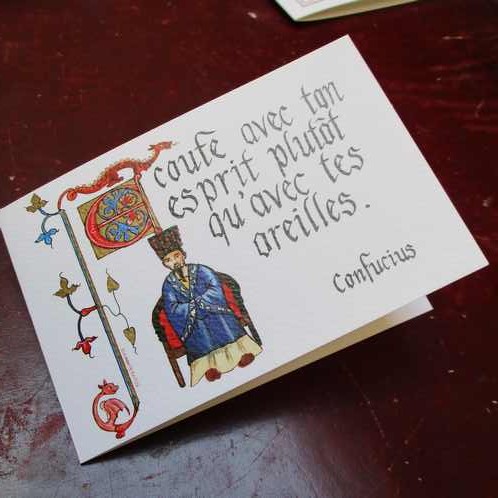 Ecoute avec ton
esprit plutôt
qu'avec tes
oreilles.
Confucius